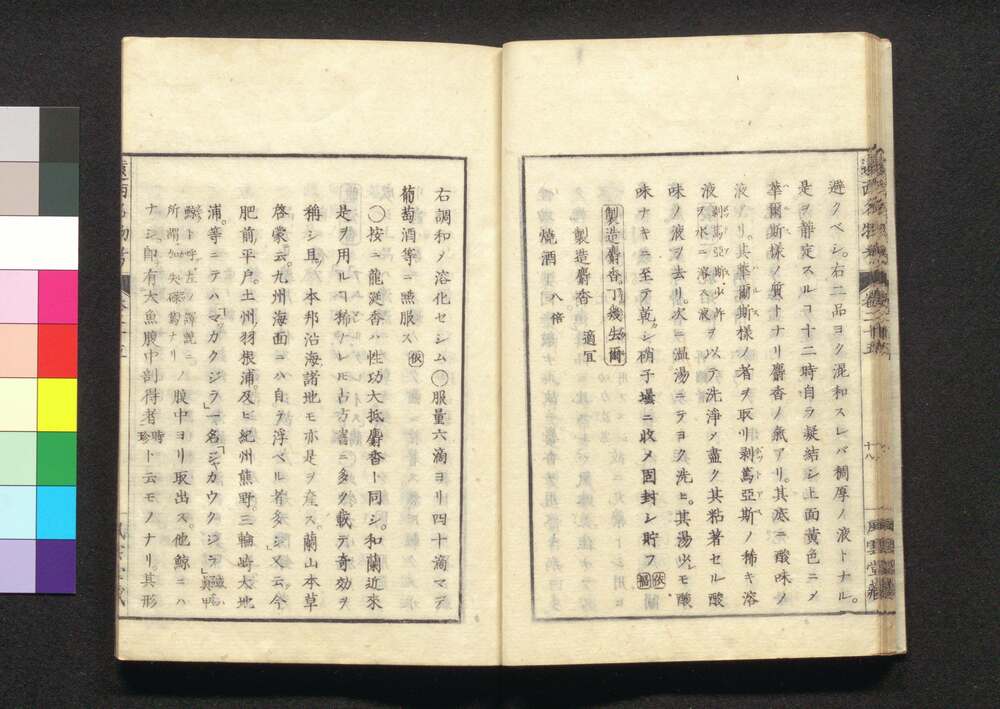 避クベシ。右二品ヨク混和スレバ稠厚ノ液トナル。
是ヲ静定スルコト十二時自ラ凝結シ上面黄色ニメ
華爾斯様ノ質トナリ麝香ノ氣アリ。其底ニ酸味ノ
液アリ。其華爾斯様ノ者ヲ取リ剥篤亞斯ノ稀キ溶
液 剥篤亞斯少許ヲ水ニ溶ス ヲ以テ洗浄メ盡ク其粘著セル酸
味ノ液ヲ去リ。次ニ温湯ニテヨク洗ヒ。其湯少モ酸
味ナキニ至テ乾シ硝子壜ニ收メ固封シ貯フ
製造麝香丁幾
製造麝香 適宜
燒酒 八倍
右調和メ溶化セシム〇服量六滴ヨリ四十滴マデ
葡萄酒等ニ䕃服ス
〇按ニ龍涎香ハ性功大抵麝香ト同シ。和蘭近來
是ヲ用ルコト稀ノレ𪜈古方書ニ多ク載テ奇効ヲ
稱シ且ツ本邦沿海諸地モ亦是ヲ産ス。蘭山本草
啓蒙云九州海面ニハ自ラ浮ベル者多シ又云今
肥前平戸。土州羽根浦。及ヒ紀州熊野。三輪崎太地
浦。等ニテハ「マガクジラ」一名「ジャカウクジラ」
ナシ即有大魚腹中剖得者 時珍 ト云モノナリ。其形
十八
風雲堂蔵